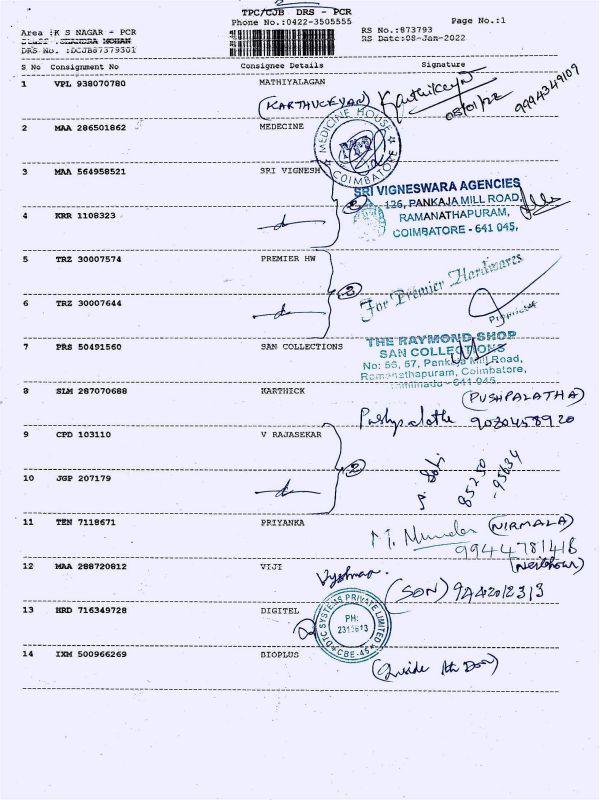 TPC/CJB DRS - PCR
Phone No.:0422-3505555 Page No.:1
Area :K S NAGAR - PCR RS No.:873793
DRS No. :DCJB87379301 RS Date:08-Jan-2022
S No Consignment No Consignee Details Signature
1 VPL 938070780 MATHIYALAGAN
(KARTHICKEYAN) Karthikeyan 08/01/22 9994349109
2 MAA 286501862 MEDECINE
MEDICINE HOUSE
COIMBATORE
3 MAA 564958521 SRI VIGNESH
2
SRI VIGNESWARA AGENCIES
126, PANKAJA MILL ROAD,
RAMANATHAPURAM,
COIMBATORE - 641 045,
4 KRR 1108323
5 TRZ 30007574 PREMIER HW
2
For Premier Hardwares
Proprietor
6 TRZ 30007644
7 PRS 50491560 SAN COLLECTIONS
THE RAYMOND SHOP
SAN COLLECTIONS
No: 56, 57, Pankaja Mill Road,
Ramanathapuram, Coimbatore,
Tamilnadu - 641 045.
8 SLM 287070688 KARTHICK
(PUSHPALATHA)
Pushpalatha 9080458920
9 CPD 103110 V RAJASEKAR
2
85250
-95634
10 JGP 207179
11 TEN 7118671 PRIYANKA
(NIRMALA)
9944781418
(Neibhour)
12 MAA 288720812 VIJI
(SON) 9442012313
13 HRD 716349728 DIGITEL
DTC SYSTEMS PRIVATE LIMITED
PH:
2313613
CBE-45
14 IXM 500966269 BIOPLUS
(Inside the Door)